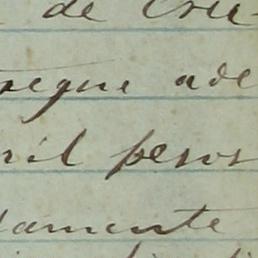 de Cru-
segue ade
mil pesos
damente